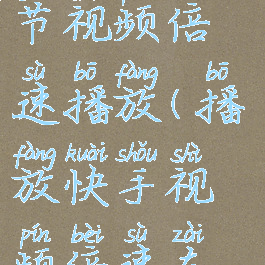 节视频倍
sù bō fàng bō
速播放(播
fàng kuài shǒu shì
放快手视
pín bèi sù zài
频倍速在